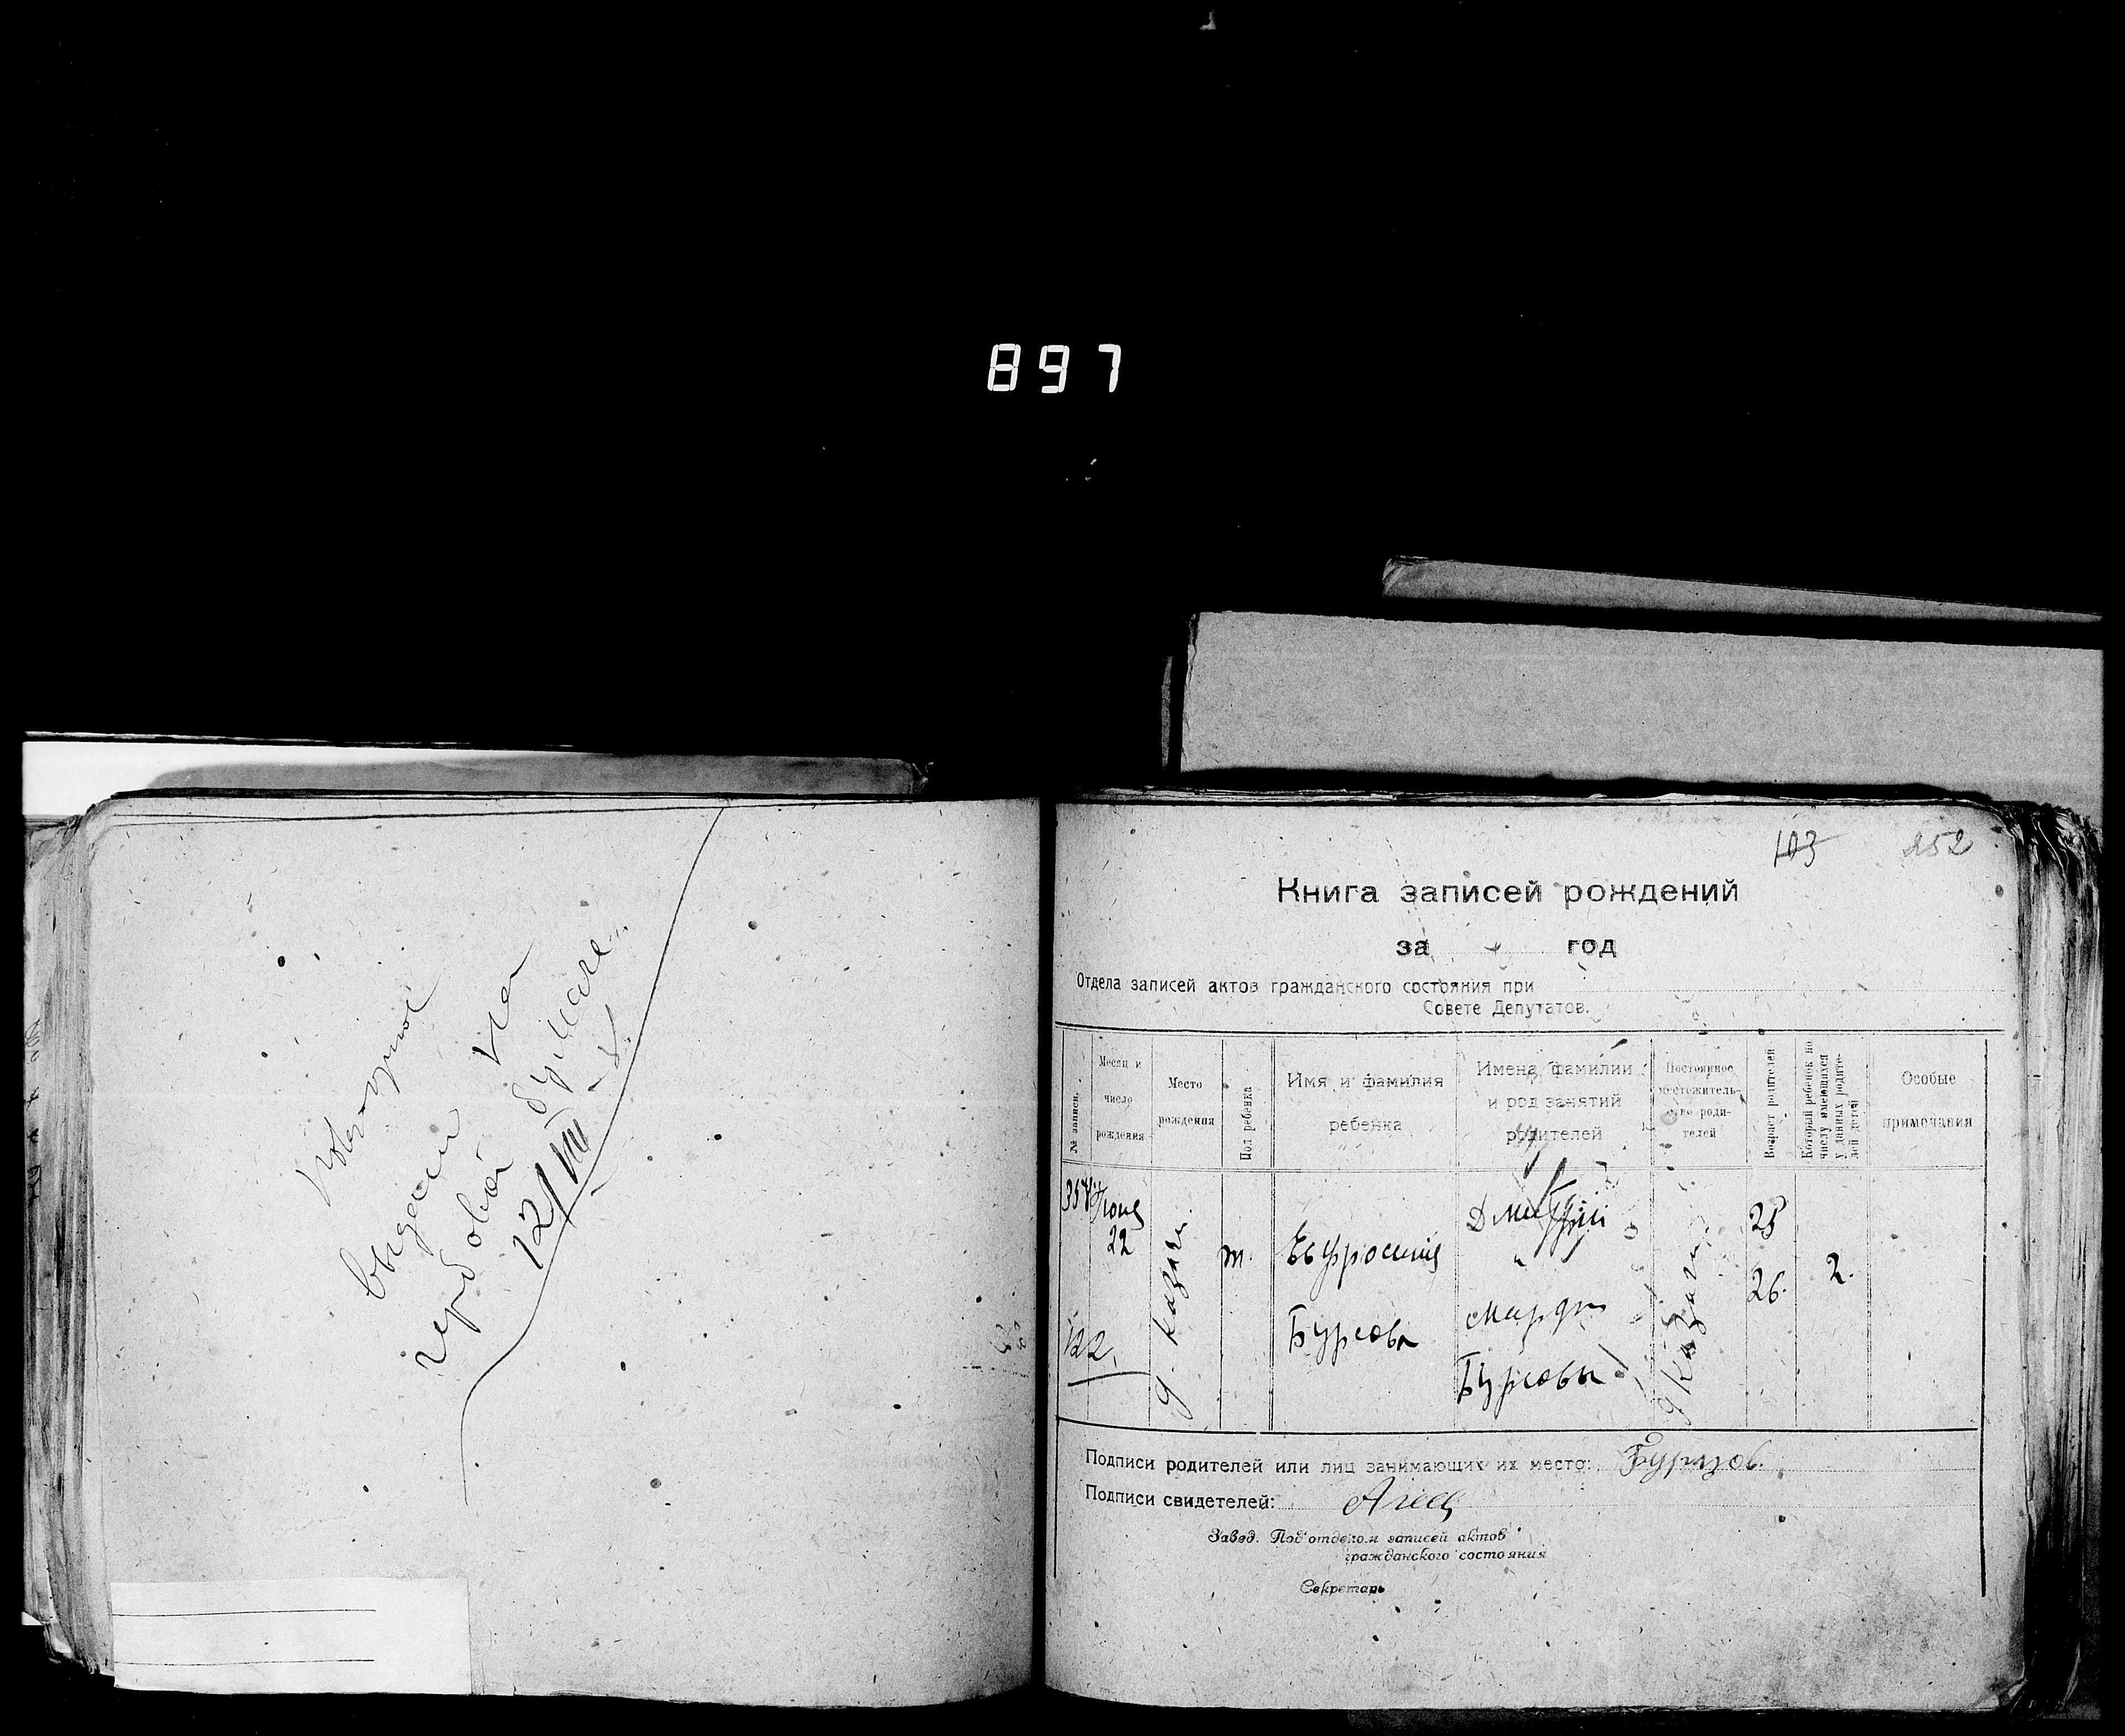 897
Повторное
выдан на
гербовой бумаге.
12/VIII
103 252
Книга записей рождений
за год
Отдела записей актов гражданского состояния при
Совете Депутатов.
№ записи.
Месяц и число рождения
Место рождения
Пол ребенка
Имя и фамилия ребенка
Имена, фамилии и род занятий родителей
Постоянное местожительство родителей
Возраст родителей
Который ребенок по числу имеющихся у данных родителей детей
Особые примечания
Июня
22
122
д. Казаки
Ефросиния
Бурсова
Дмитрий
Марфа
Бурсовы
д Казаки
25
26.
2.
Подписи родителей или лиц занимающих их место: Бурцов.
Подписи свидетелей:
Завед. Под'отделом записей актов
гражданского состояния
Секретарь